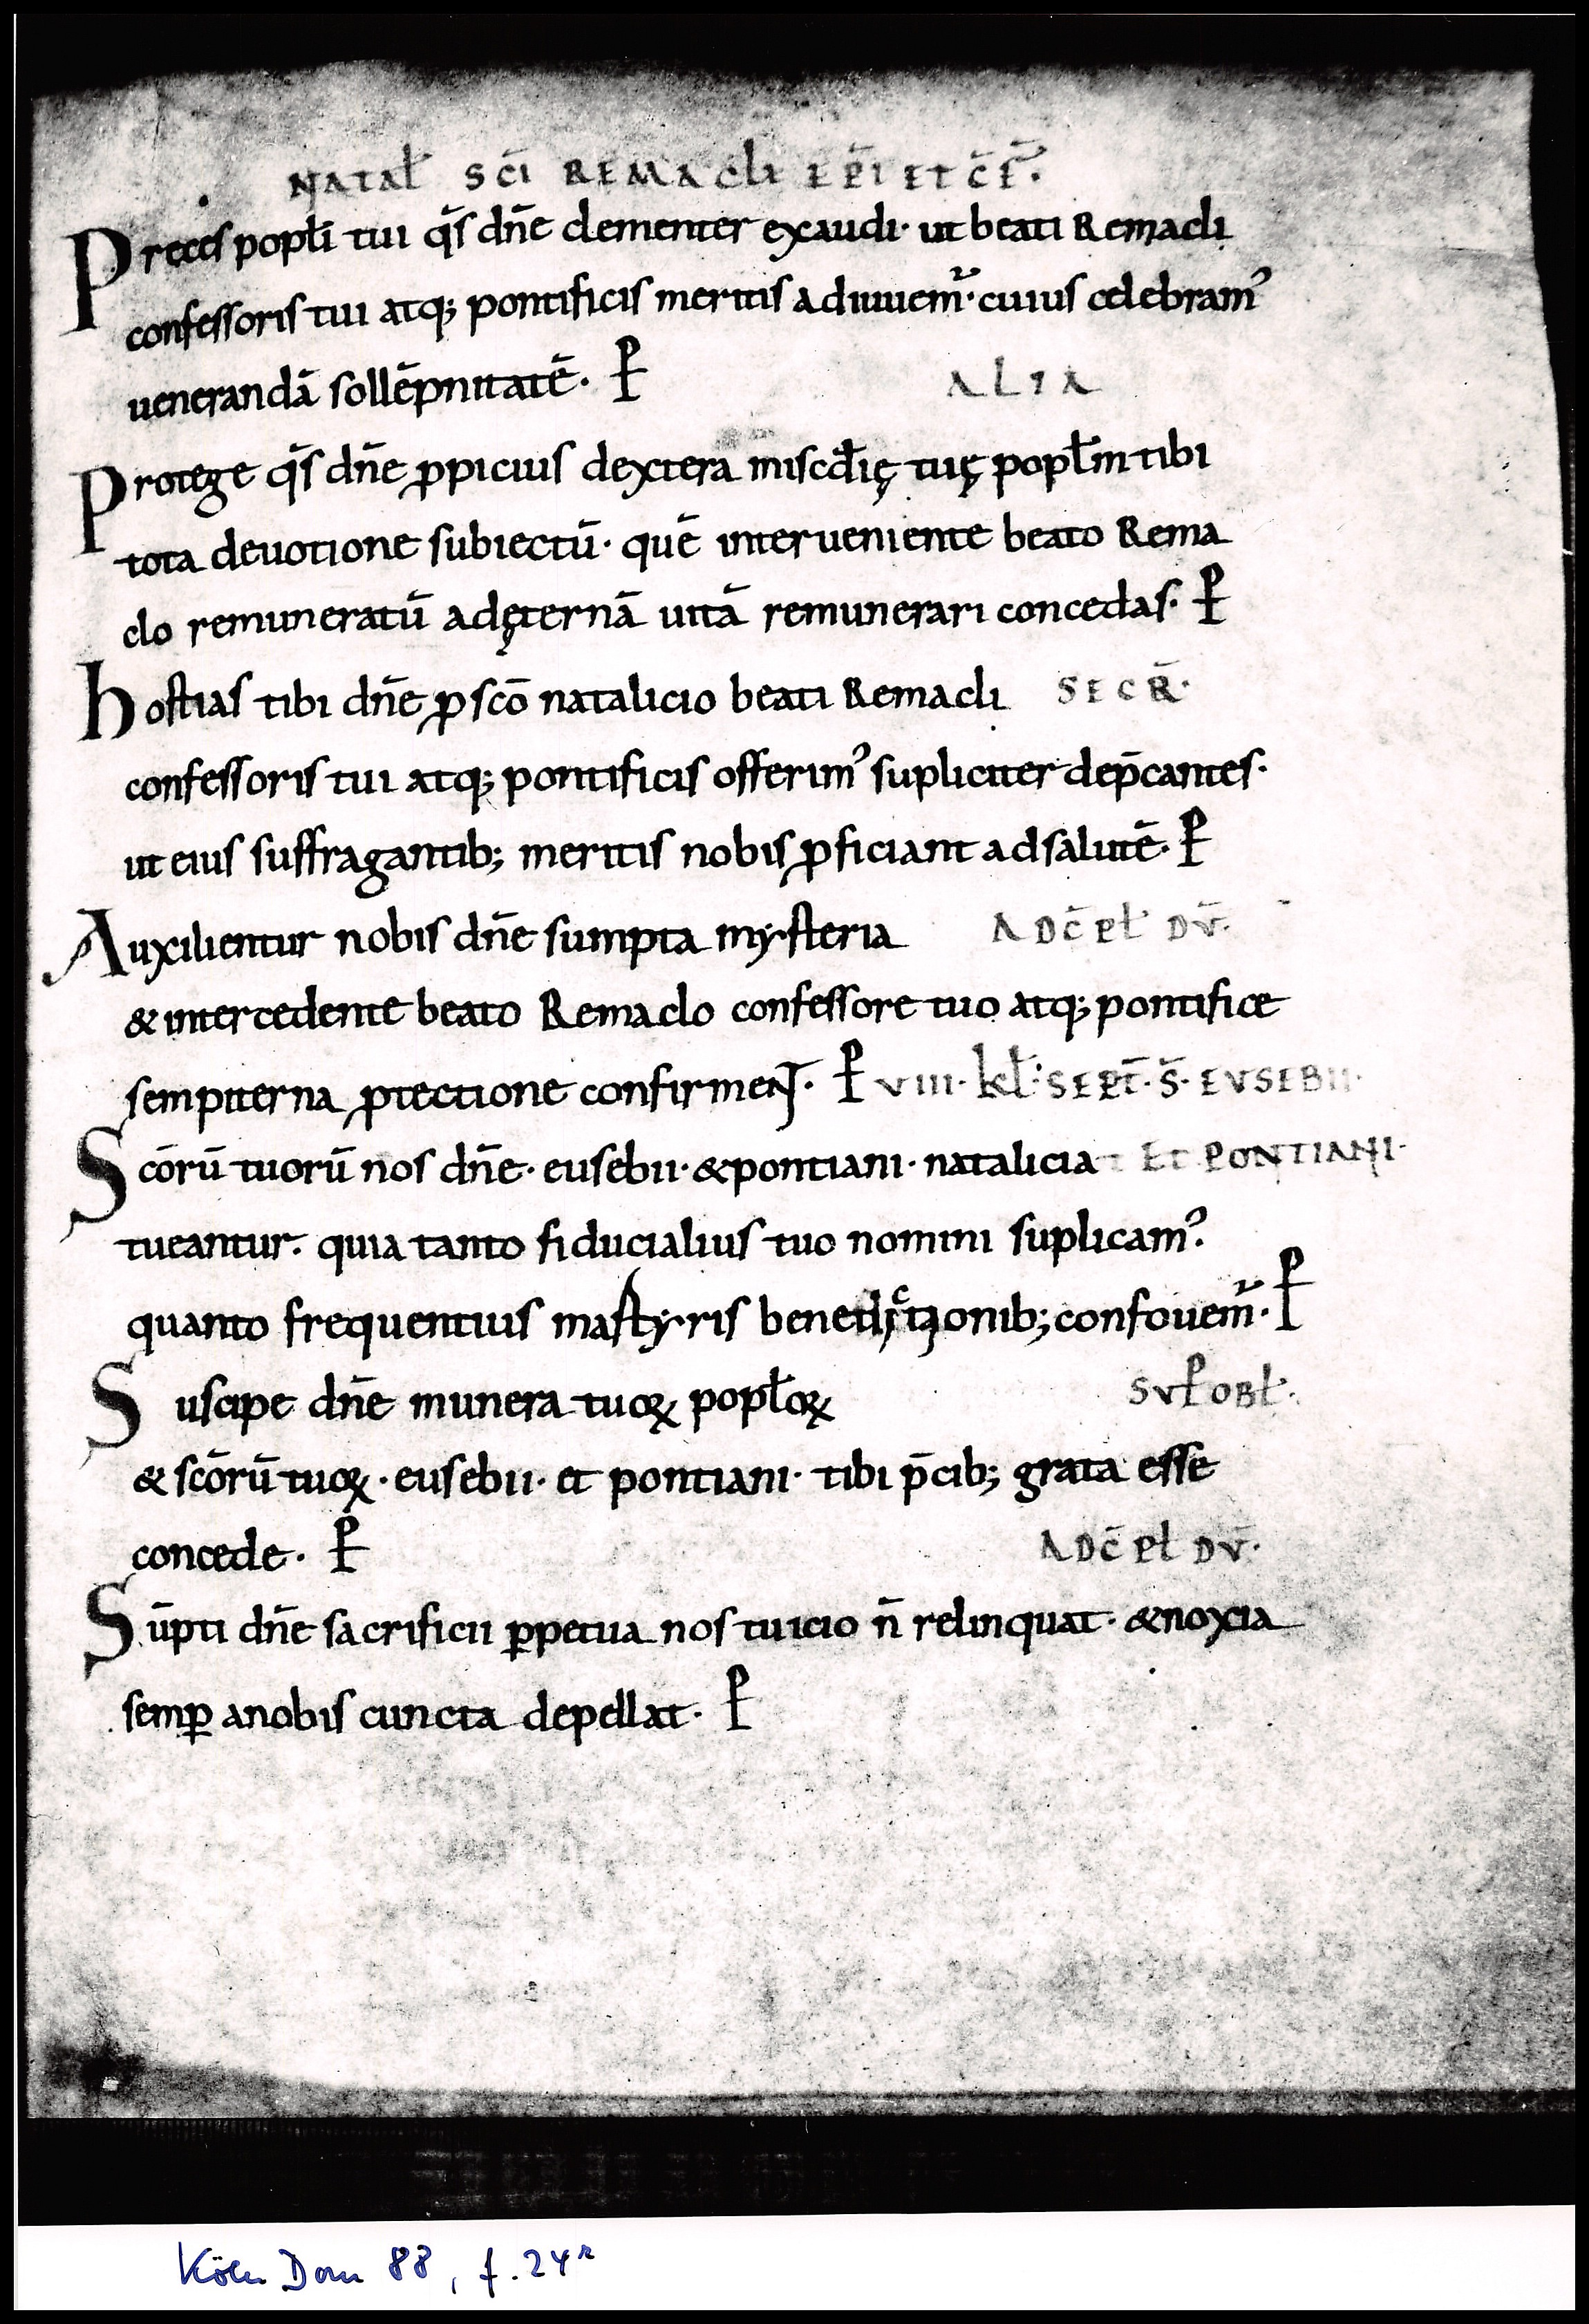 NATAL̄ SC̄I REMACLI EP̄I ET C̄F̄.
Preces popl̄i tui qs̄ dn̄e clementer exaudi· ut beati Remacli
confessoris tui atq; pontificis meritis adiuuem̄· cuius celebram᾽
uenerandā sollēpnitatē· P̵
ALIA
Protege qs̄ dn̄e ꝓpicius dextera miscd̄ię tuę popl̄m tibi
tota deuotione subiectū· quē interueniente beato Rema
clo remuneratū adęternā uitā remunerari concedas· P̵
hostias tibi dn̄e ꝓ scō natalicio beati Remacli SECR̄·
confessoris tui atq; pontificis offerim᾽ supliciter dep̄cantes·
ut eius suffragantib; meritis nobis ꝓficiant adsalutē· P̵
Auxilientur nobis dn̄e sumpta mẏsteria ADC̄PL̄ DV̄·
& intercedente beato Remaclo confessore tuo atq; pontifice
sempiterna ꝓtectione confirmenT· P̵ VIII· kl̄· SEPT̄· S̄· EVSEBII·
Scōrū tuorū nos dn̄e· eusebii· &pontiani· natalicia ET PONTIANI·
tueantur· quia tanto fiducialius tuo nomini suplicam᾽·
quanto frequentius martẏris benedictionib; confouem̄· P̵
Suscipe dn̄e munera tuoꝝ popl̄oꝝ SVP̵OBL̄·
& scōrū tuoꝝ· eusebii· et pontiani· tibi p̄cib; grata esse
concede· P̵ ADC̄PL̄ DV̄·
Sūpti dn̄e sacrificii ꝑpetua nos tuicio n̄ relinquat· &noxia
semꝑ anobis cuncta depellat· P̵
Köln Dom 88, f. 24r